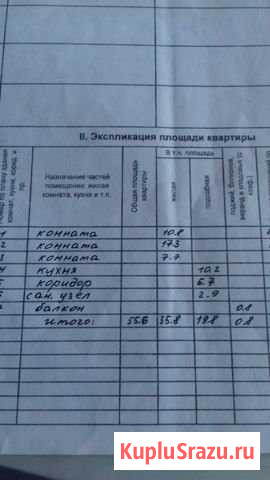 II. Экспликация площади квартиры
Назначение частей помещения: жилая комната, кухня и т.п.
Общая площадь квартиры
В т.ч. площадь
жилая
подсобная
лоджий, балконов,
веранд и кладовых (с
коэф.)
комната 10.8
2 комната 17.3
3 комната 7.7
4 кухня 10.2
5 коридор 6.7
сан. узел 2.9
балкон 0.8
итого: 55.6 35.8 19.8 0.8
KupluSrazu.ru